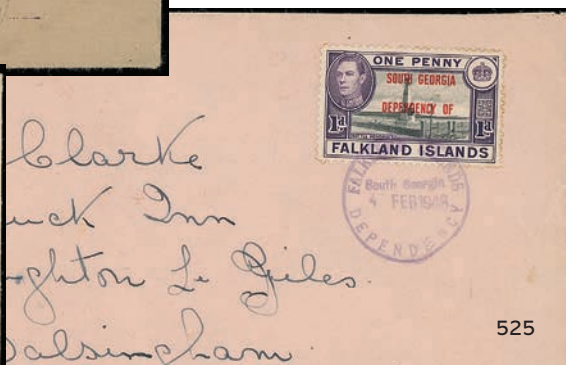 ONE PENNY
SOUTH GEORGIA
DEPENDENCY OF
1d 1d
FALKLAND ISLANDS
South Georgia
4 FEB 1948
DEPENDENCY
Clarke
uck Inn
ghton Le Giles.
alsingham.
525